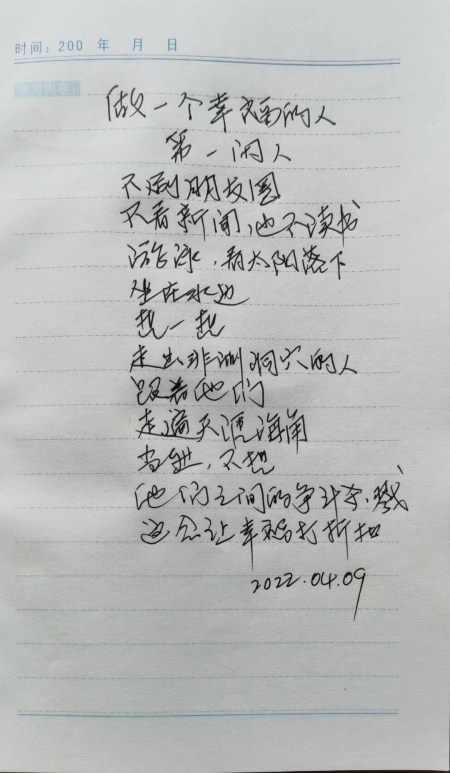 时间：200 年 月 日
学习内容
做一个幸福的人
第一闲人
不刷朋友圈
不看新闻，也不读书
游泳，看太阳落下
坐在水边
想一想
走出非洲洞穴的人
跟着他们
走遍天涯海角
当然，不想
他们之间的争斗杀戮
这会让幸福打折扣
2022.04.09